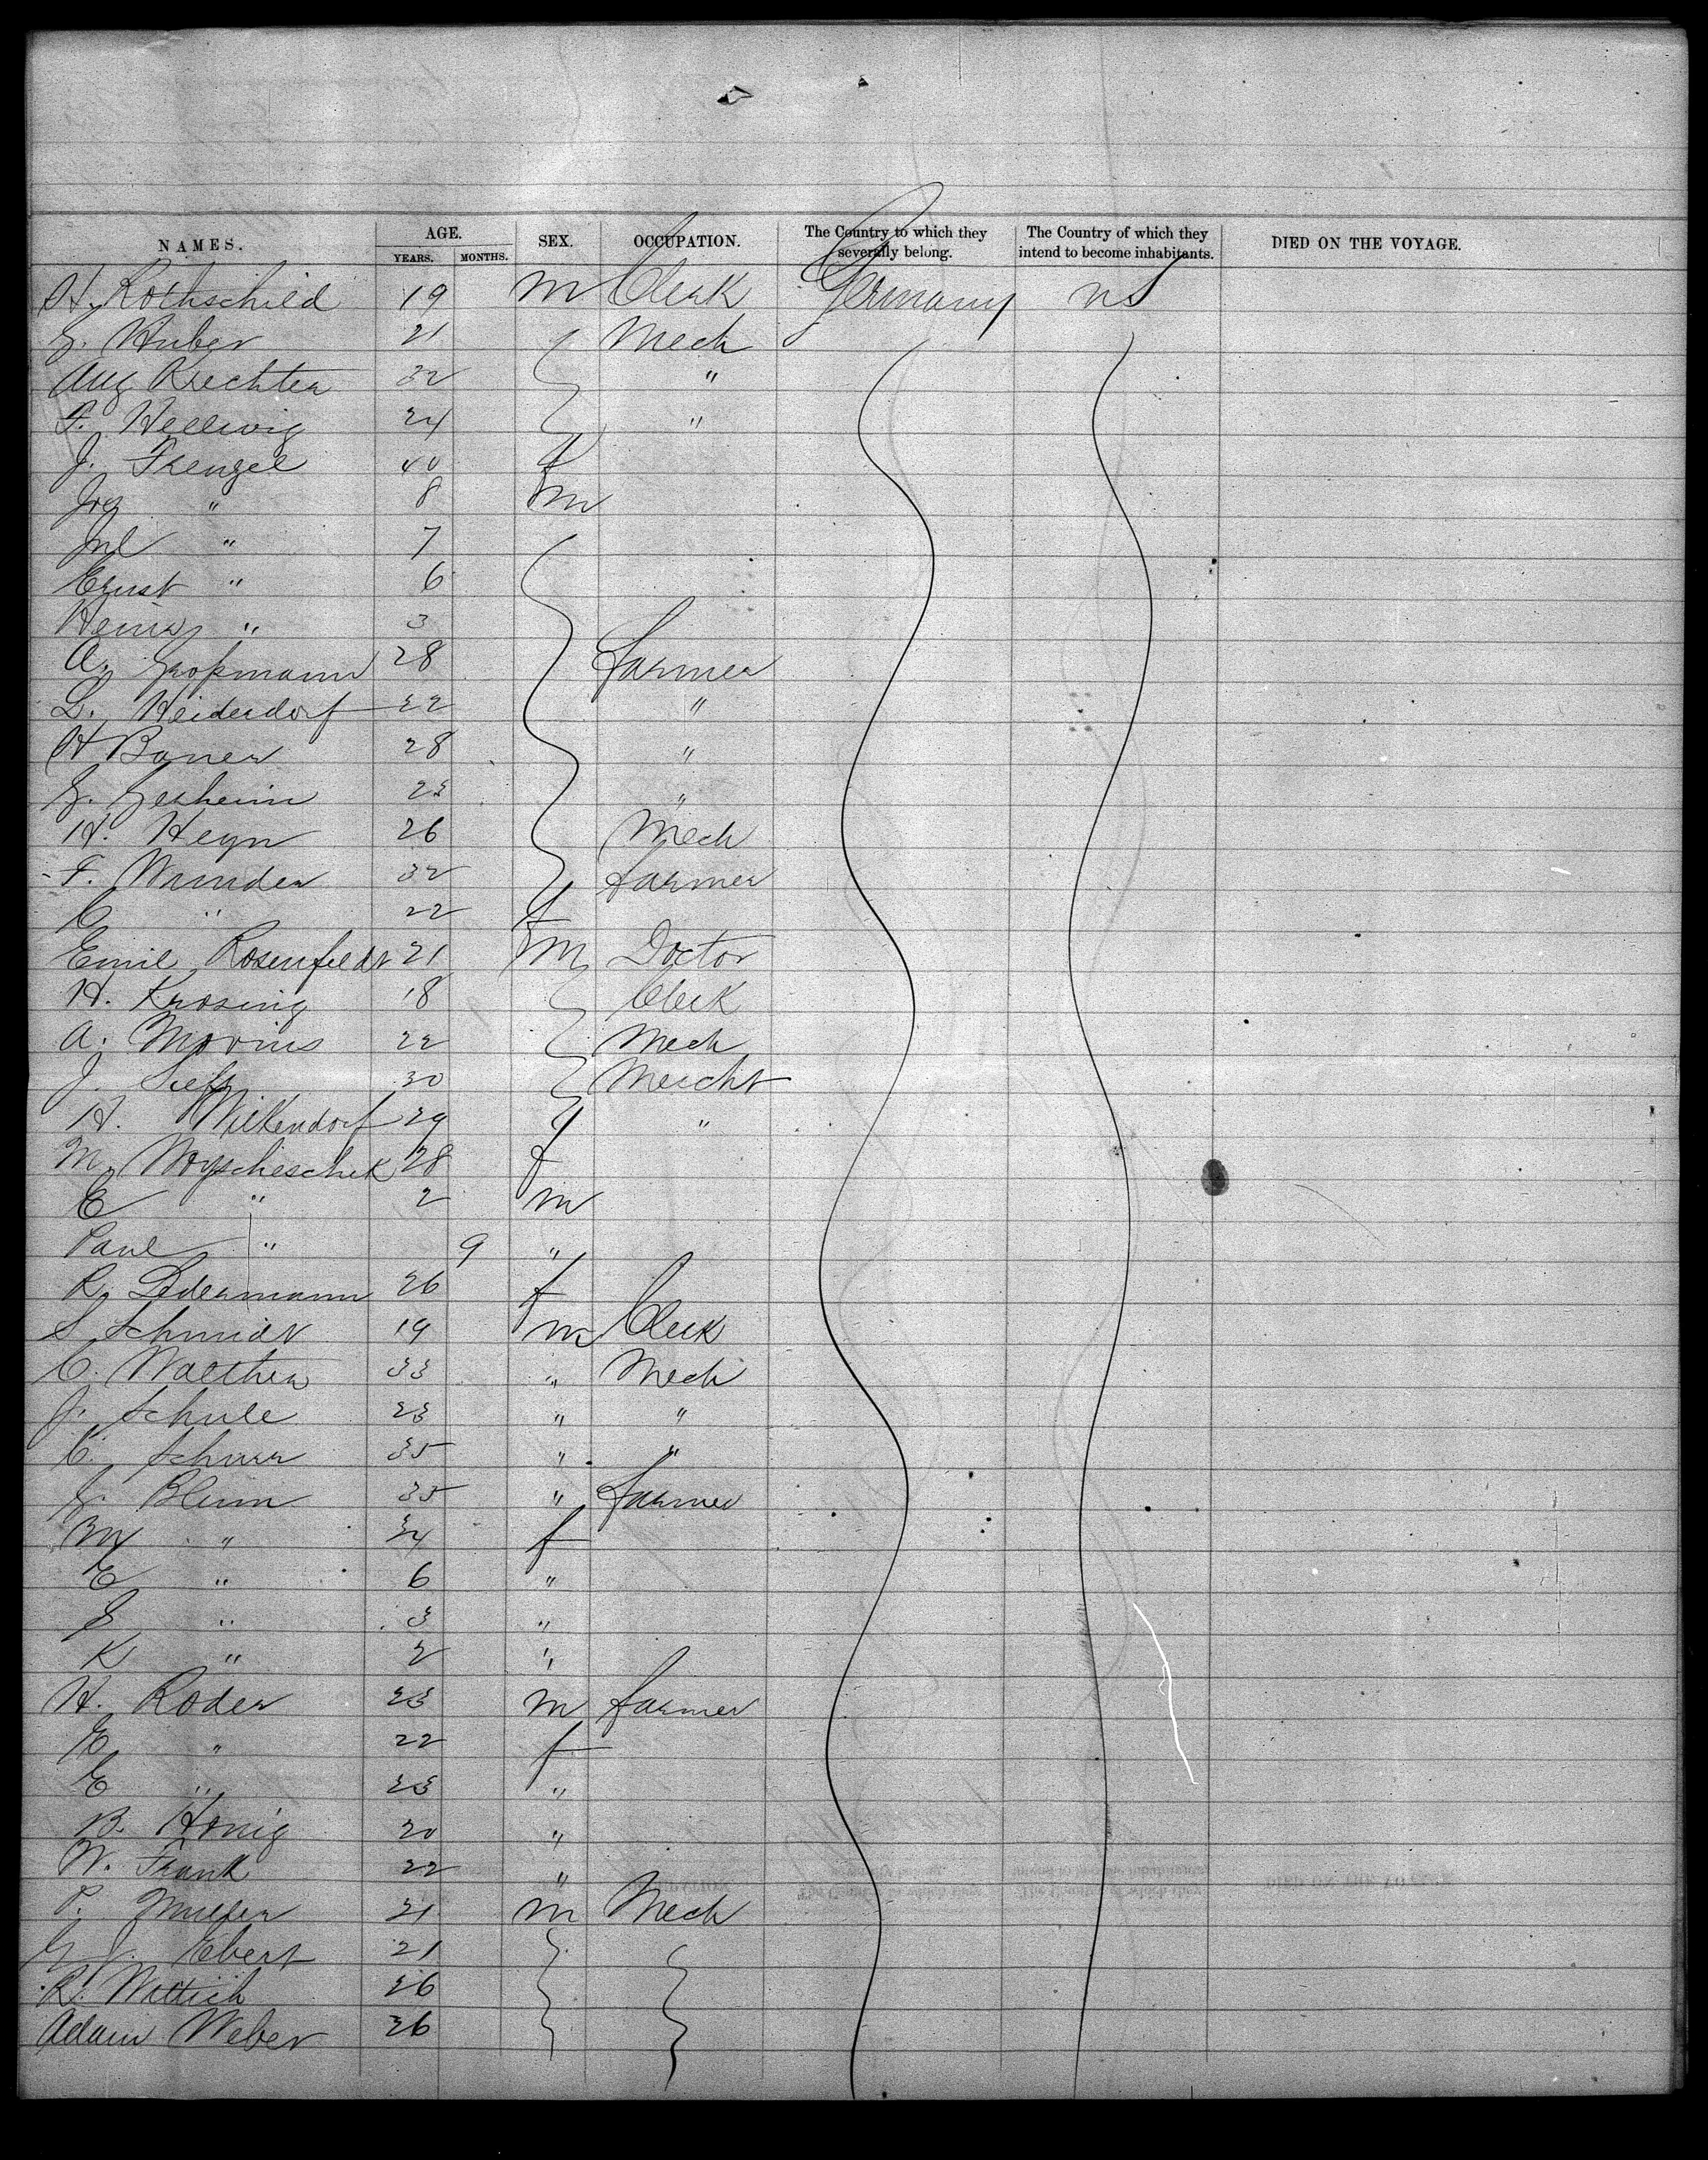 NAMES. AGE. YEARS. MONTHS. SEX. OCCUPATION. The Country to which they severally belong. The Country of which they intend to become inhabitants. DIED ON THE VOYAGE.
H. Rothschild 19 m Clerk Germany US
G. Huber 21 Mech
Aug Krechter 32 "
F. Hellwig 24 "
J. Frenzel 40 f
" 8 m
Jul " 7
Ernst " 6
Heinr " 3
A. Großmann 28 farmer
L. Heiderdorf 22 "
H Bauer 28 "
G. 23 "
H. Heyn 26 Mech
F. Wunder 32 farmer
C " 22 f
Emil Rosenfeldt 21 m Doctor
H. Krosing 18 Clerk
A. Movius 22 Mech
J. 30 Mercht
H. Wilkendorf 29 "
M. Woyscheschek 28 f
E " 2 m
Paul " 9 "
R. Ledermann 26 f
S Schmidt 19 m Clerk
C. Walther 33 " Mech
J. Schule 23 " "
C. Schurr 35 " "
G. Blum 35 " farmer
" 34 f
E " 6 "
S " 3 "
K " 2 "
H. Roder 23 m farmer
E " 22 f
E " 23 "
B. Honig 20 "
W. Frank 22 "
P. Muller 21 m Mech
G J. Ebert 21
R. Wittich 26
Adam Weber 26